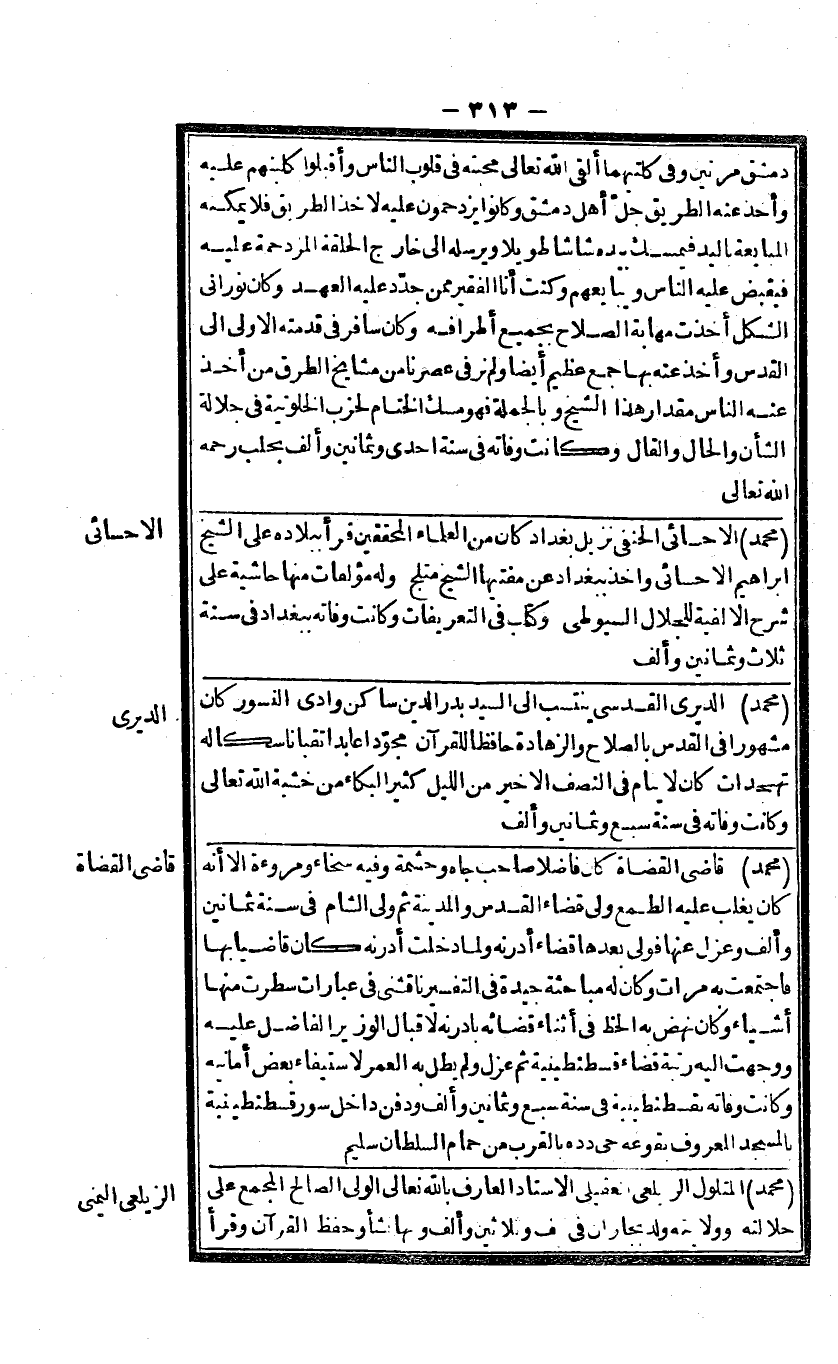 — ٣١٣ —
دمشق مرتين وفى كلتيهما ألقى الله تعالى محبته فى قلوب الناس وأقبلوا كليتهم عليه
وأخذ عنه الطريق جلّ أهل دمشق وكانوا يزدحمون عليه لاخذ الطريق فلا يمكنه
المبايعة باليد فيمسك بيده شاشا طويلا ويرسله الى خارج الحلقة المزدحمة عليه
فيقبض عليه الناس ويبايعهم وكنت أنا الفقير ممن جدّد عليه العهد وكان نورانى
الشكل أخذت مهابة الصلاح بجميع أطرافه وكان سافر فى قدمته الاولى الى
القدس وأخذ عنه بها جمع عظيم أيضا ولم نر فى عصرنا من مشايخ الطرق من أخذ
عنه الناس مقدار هذا الشيخ وبالجملة فهو مسك الختام لحزب الخلوتية فى جلالة
الشأن والحال والقال وكانت وفاته فى سنة احدى وثمانين وألف بحلب رحمه
الله تعالى
الاحسائى
(محمد) الاحسائى الحنفى نزيل بغداد كان من العلماء المحققين قرأ ببلاده على الشيخ
ابراهيم الاحسائى واخذ ببغداد عن مفتيها الشيخ مدلج وله مؤلفات منها حاشية على
شرح الالفية للجلال السيوطى وكتاب فى التعريفات وكانت وفاته ببغداد فى سنة
ثلاث وثمانين وألف
الديرى
(محمد) الديرى القدسى ينتسب الى السيد بدر الدين ساكن وادى النسور كان
مشهورا فى القدس بالصلاح والزهادة حافظا للقرآن مجوّدا عابدا تقيا ناسكا له
تهجدات كان لا ينام فى النصف الاخير من الليل كثير البكاء من خشية الله تعالى
وكانت وفاته فى سنة سبع وثمانين وألف
قاضى القضاة
(محمد) قاضى القضاة كان فاضلا صاحب جاه وحشمة وفيه سخاء ومروءة الا أنه
كان يغلب عليه الطمع ولى قضاء القدس والمدينة ثم ولى الشام فى سنة ثمانين
وألف وعزل عنها فولى بعدها قضاء أدرنه ولما دخلت أدرنه كان قاضيا بها
فاجتمعت به مرات وكان له مباحثة جيدة فى التفسير ناقشنى فى عبارات سطرت منها
أشياء وكان نهض به الحظ فى أثناء قضائه بادرنه لاقبال الوزير الفاضل عليه
ووجهت اليه رتبة قضاء قسطنطينية ثم عزل ولم يطل به العمر لاستيفاء بعض أمانيه
وكانت وفاته بقسطنطينية فى سنة سبع وثمانين وألف ودفن داخل سور قسطنطينية
بالمسجد المعروف بقوغه جى دده بالقرب من حمام السلطان سليم
الزيلعى اليمنى
(محمد) المتلول الزيلعى العقيلى الاستاذ العارف بالله تعالى الولى الصالح المجمع على
جلالته وولايته ولد بجازان فى نيف وثلاثين وألف وبها نشأ وحفظ القرآن وقرأ